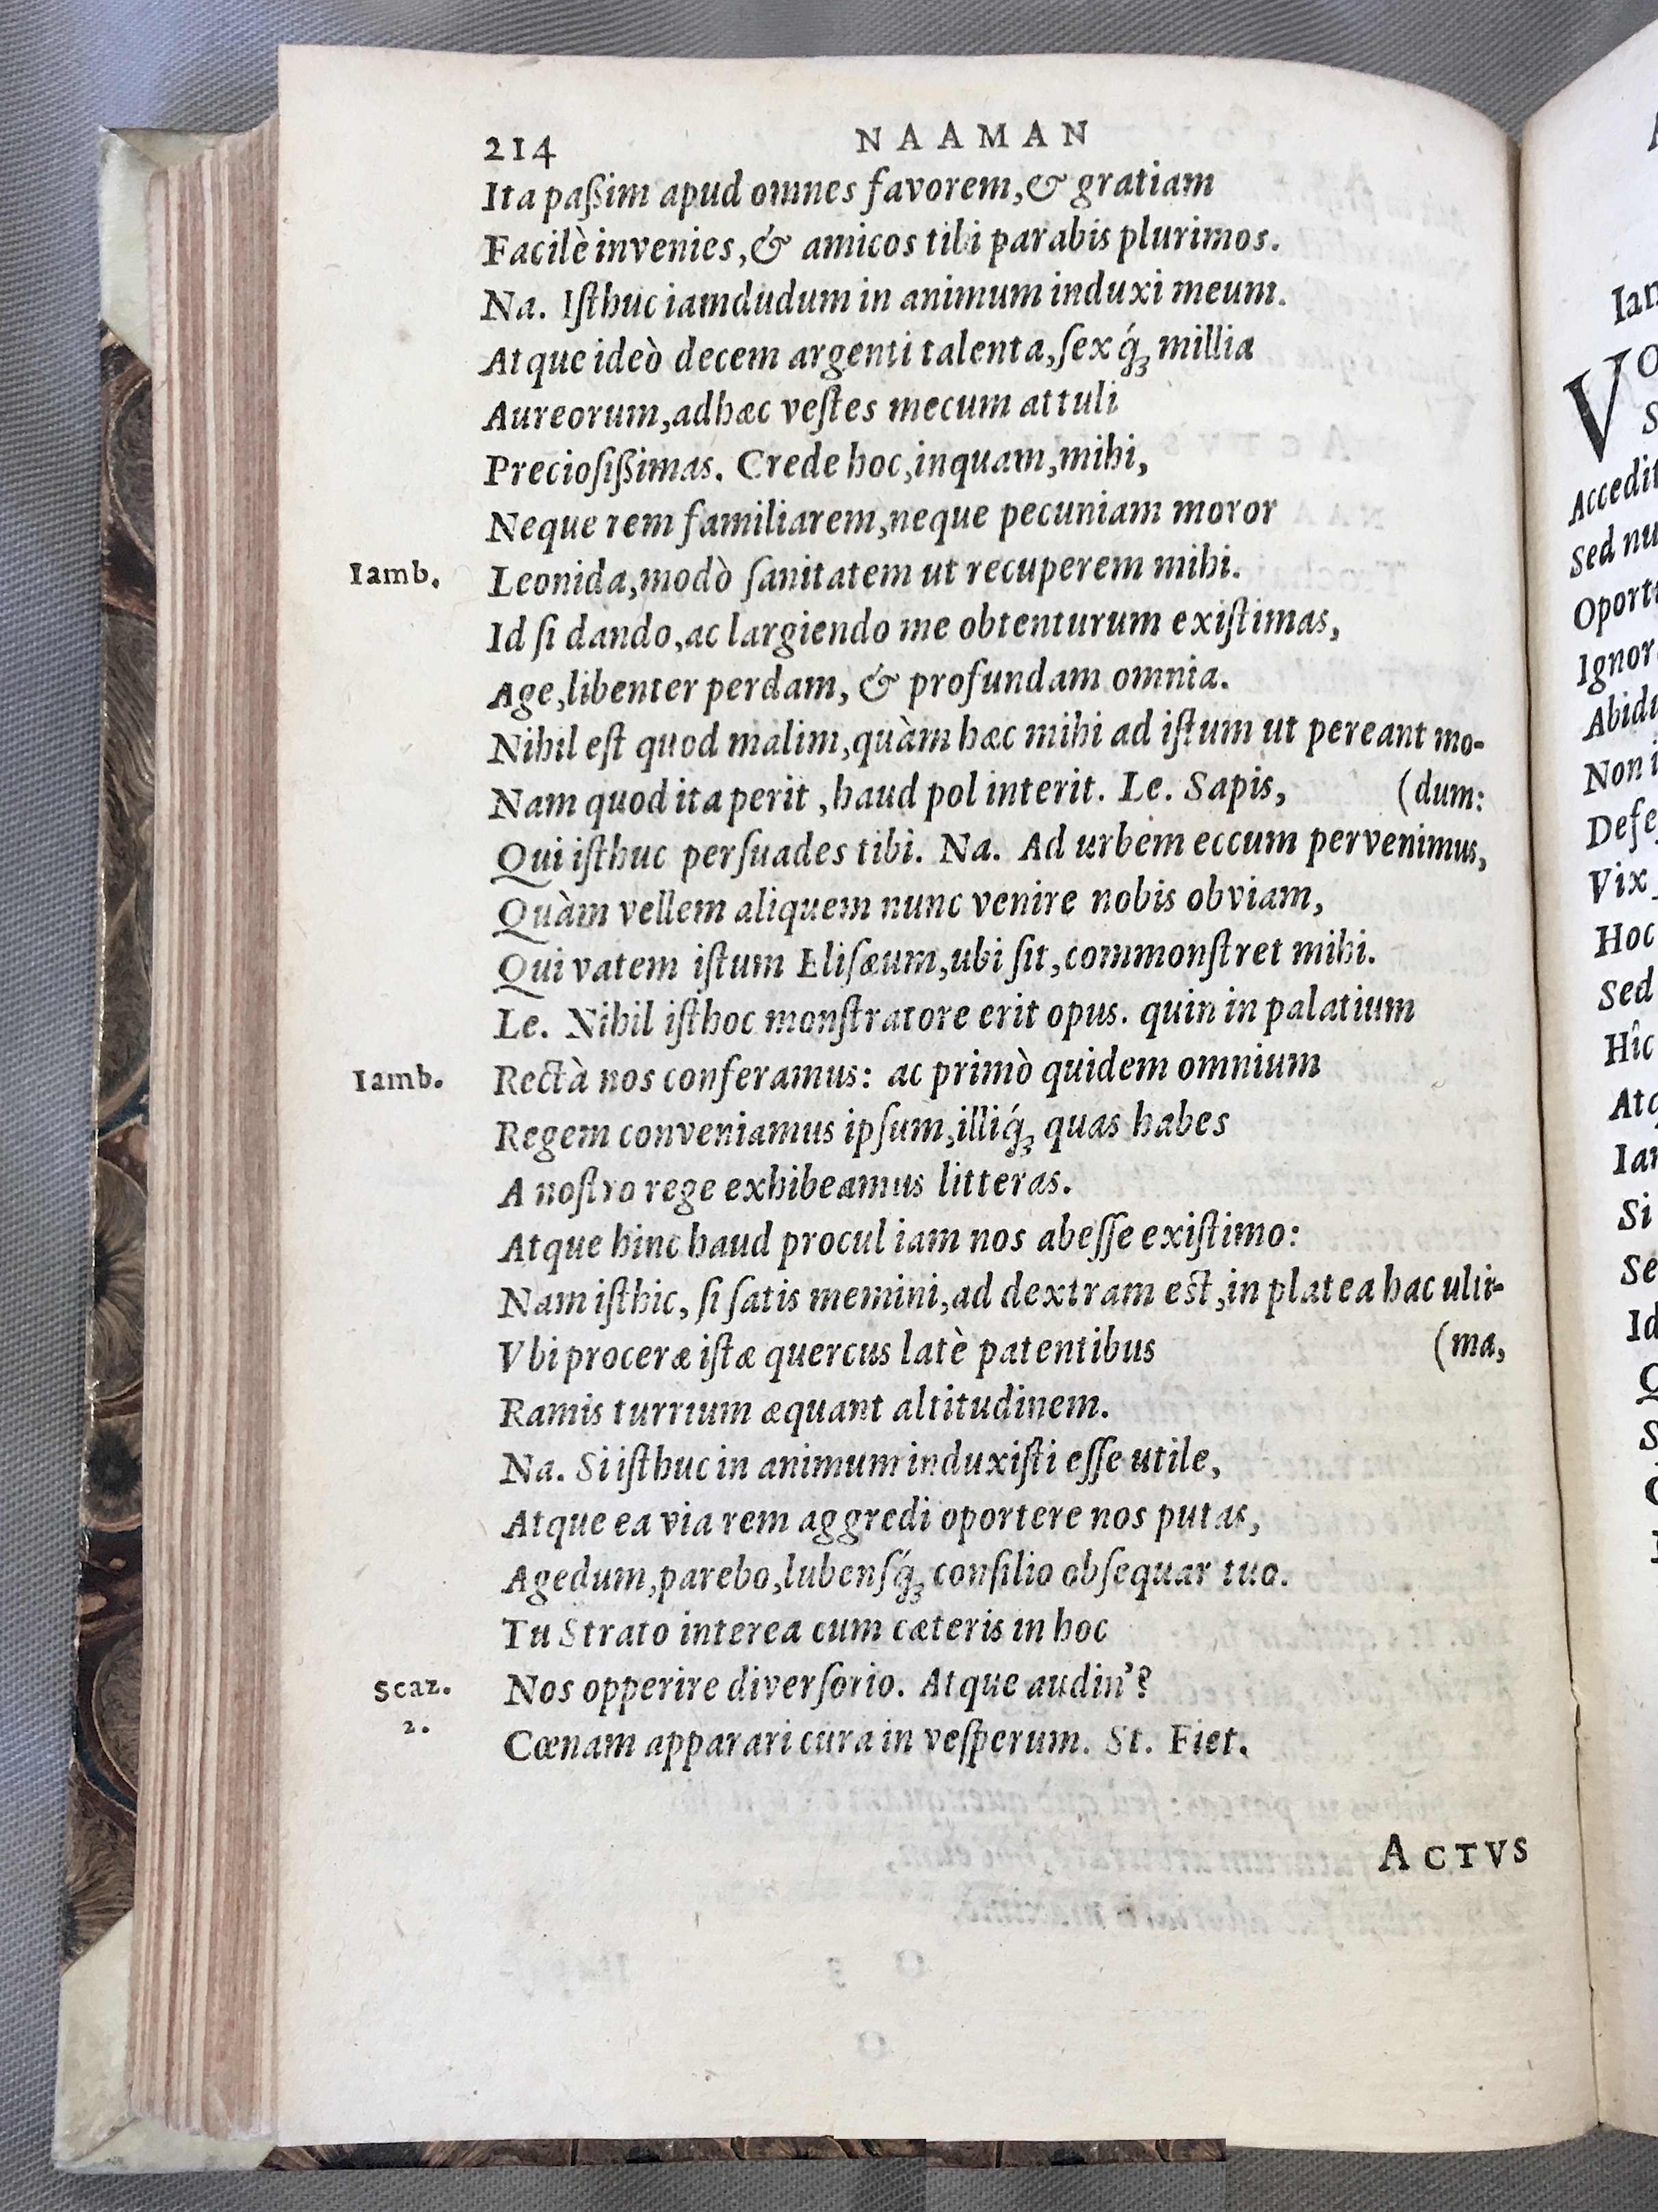 214 NAAMAN
Ita paßim apud omnes favorem,& gratiam
Facilè invenies,& amicos tibi parabis plurimos.
Na. Iſthuc iamdudum in animum induxi meum.
Atque ideò decem argenti talenta,ſex q́ꝫ millia
Aureorum,adhæc veſtes mecum attuli
Precioſißimas. Crede hoc,inquam,mihi,
Neque rem familiarem,neque pecuniam moror
Iamb. Leonida,modò ſanitatem ut recuperem mihi.
Id ſi dando,ac largiendo me obtenturum exiſtimas,
Age,libenter perdam, & profundam omnia.
Nihil eſt quod malim,quàm hæc mihi ad iſtum ut pereant mo-
Nam quod ita perit ,haud pol interit. Le. Sapis, (dum:
Qui iſthuc perſuades tibi. Na. Ad urbem eccum pervenimus,
Quàm vellem aliquem nunc venire nobis obviam,
Qui vatem iſtum Eliſæum,ubi ſit,commonſtret mihi.
Le. Nihil iſthoc monſtratore erit opus. quin in palatium
Iamb. Rectà nos conferamus: ac primò quidem omnium
Regem conveniamus ipſum,illiq́ꝫ quas habes
A noſtro rege exhibeamus litteras.
Atque hinc haud procul iam nos abeſſe exiſtimo:
Nam iſthic, ſi ſatis memini,ad dextram eſt,in platea hac ulti-
Vbi proceræ iſtæ quercus latè patentibus (ma,
Ramis turrium æquant altitudinem.
Na. Si iſthuc in animum induxiſti eſſe utile,
Atque ea via rem aggredi oportere nos putas,
Agedum,parebo,lubenſq́ꝫ conſilio obſequar tuo.
Tu Strato interea cum cæteris in hoc
Scaz. Nos opperire diverſorio. Atque audin'?
2. Cœnam apparari cura in veſperum. St. Fiet.
ACTVS
Ian
VO
S
Accedit
Sed nu
Oport
Ignor
Abid
Non i
Defe
Vix
Hoc
Sed
Hîc
Atq
Ian
Si
Se
Id
Q
S